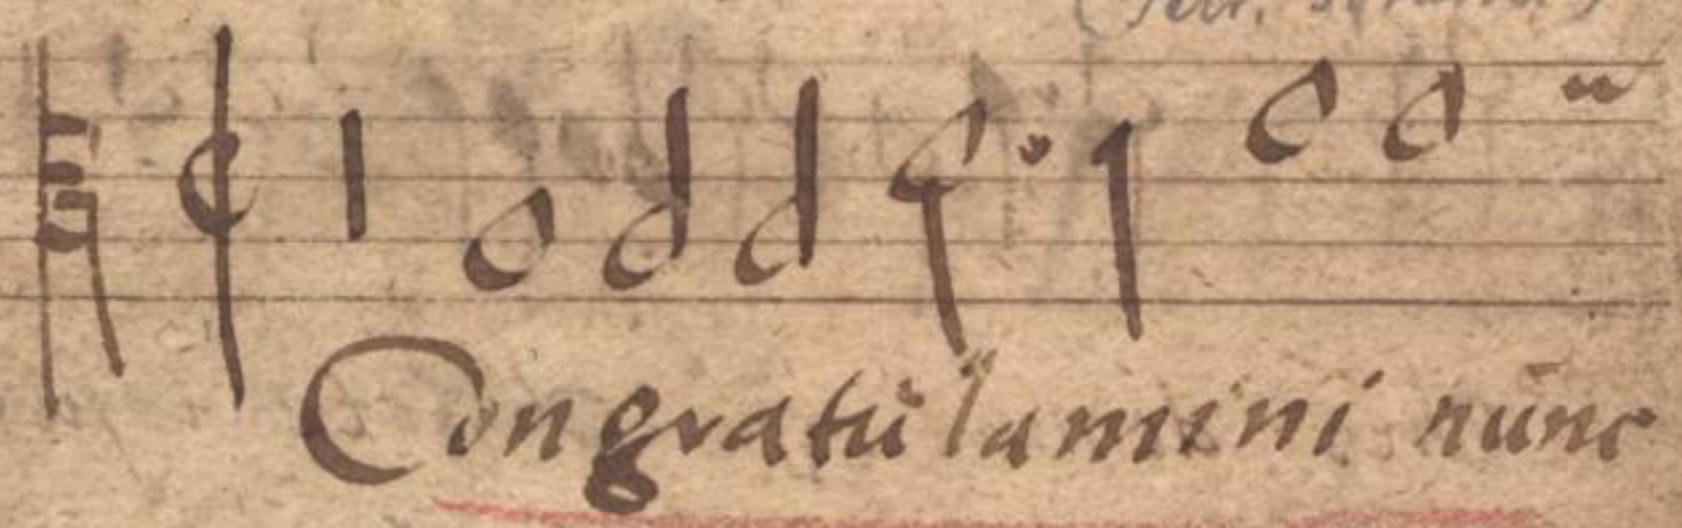 Congratulamini nunc